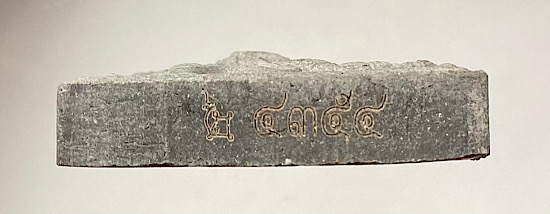 ๔๓๕๔